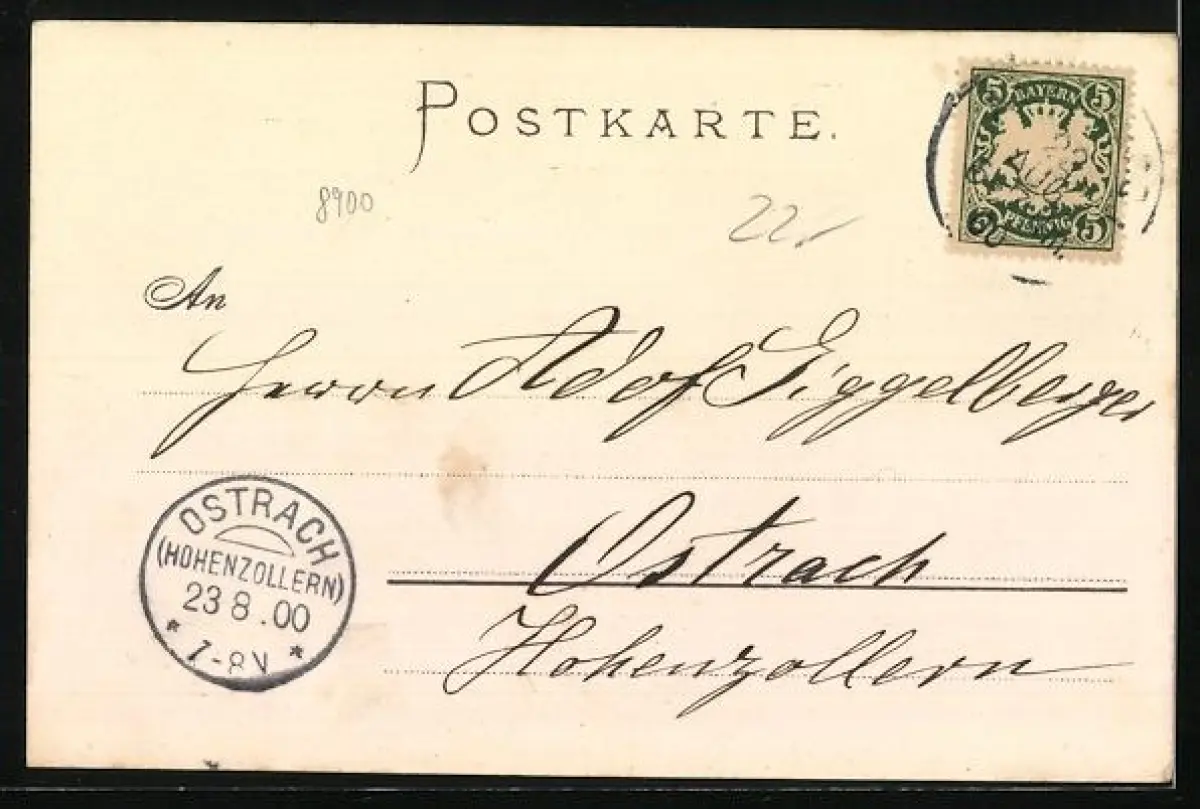 POSTKARTE.
5 BAYERN 5
PFENNIG 5
8900
22
An
Herrn Adolf Giggelberger
Ostrach
Hohenzollern
OSTRACH
(HOHENZOLLERN)
23 8.00
* 7-8N *